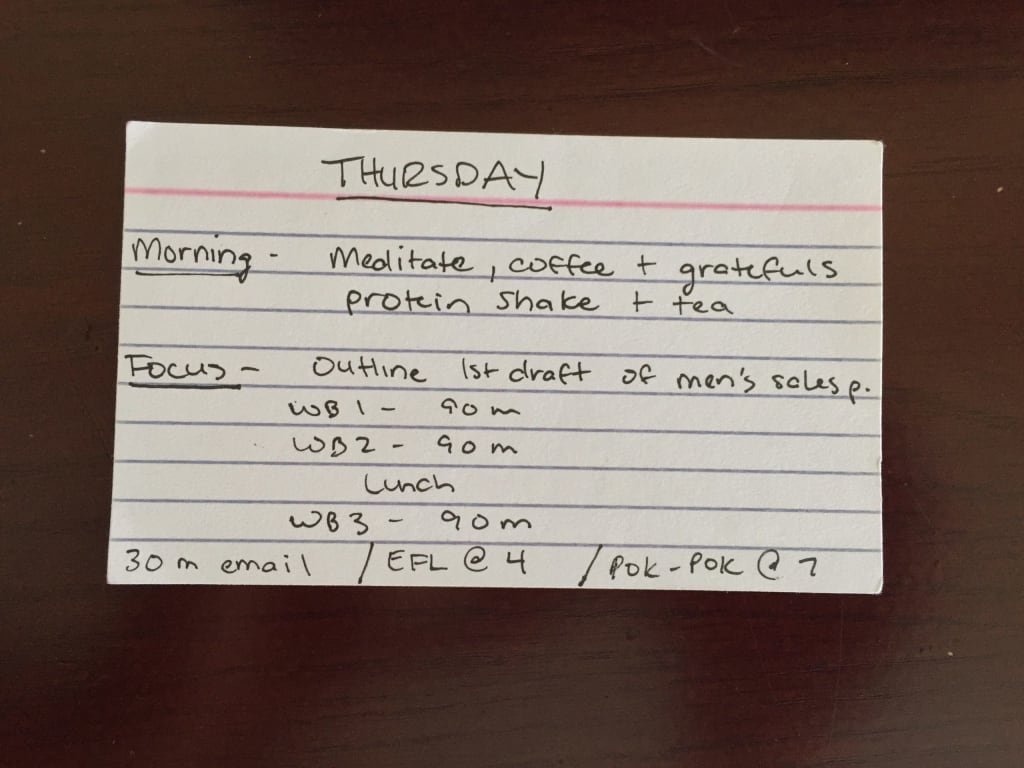 THURSDAY
Morning - Meditate, coffee + gratefuls
protein shake + tea
Focus - Outline 1st draft of men's sales p.
WB 1 - 90 m
WB 2 - 90 m
Lunch
WB 3 - 90 m
30 m email / EFL @ 4 / POK-POK @ 7